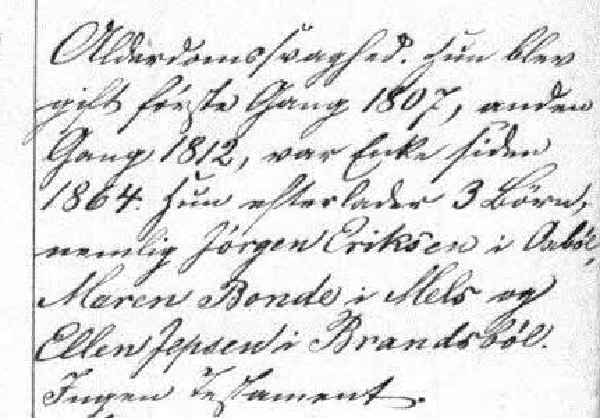 Alderdomssvaghed. Hun blev
gift første Gang 1807, anden
Gang 1812, var Enke siden
1864. Hun efterlader 3 Börn,
nemlig Jørgen Eriksen i Oxböl,
Maren Bonde i Mels og
Ellen Jepsen i Brandsböl.
Ingen Testament.